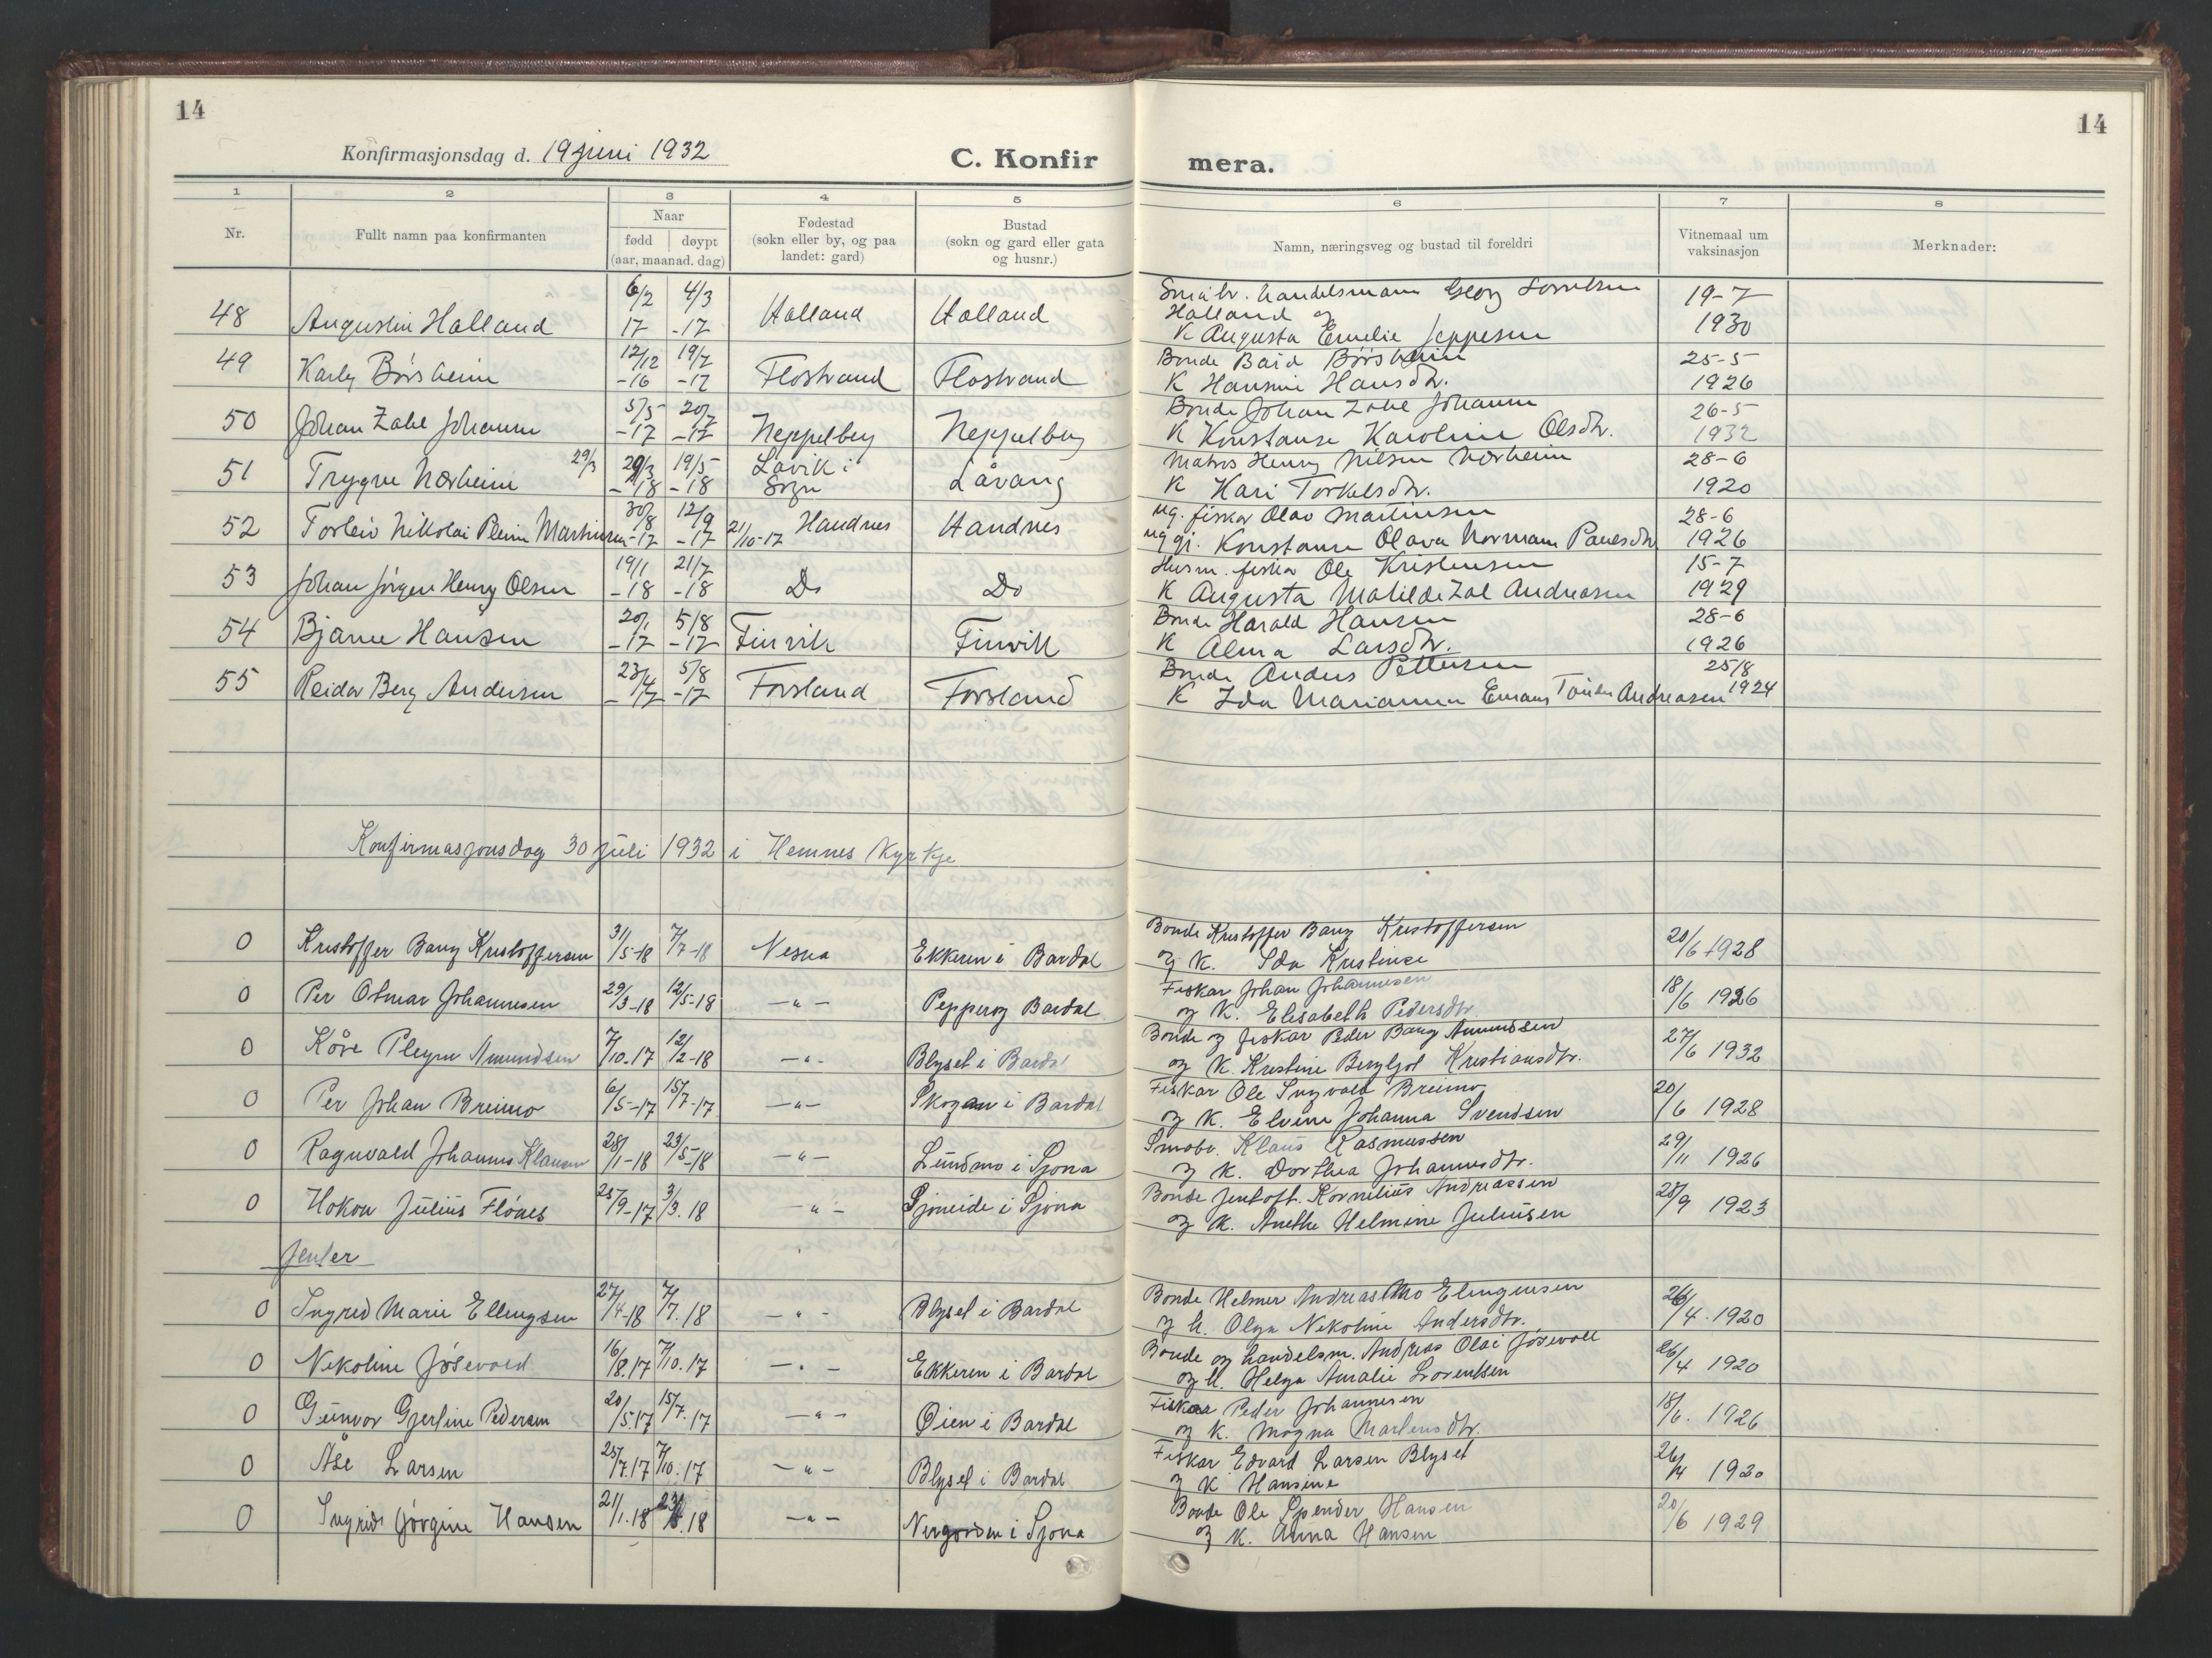 14
14
Konfirmasjonsdag d. 19 juni 1932
C. Konfirmera.
1 2 3 4 5 6 7 8
Nr.
Fullt namn paa konfirmanten
Naar
fødd døypt
(aar, maanad. dag)
Fødestad
(sokn eller by, og paa
landet: gard)
Bustad
(sokn og gard eller gata
og husnr.)
Namn, næringsveg og bustad til foreldri
Vitnemaal um
vaksinasjon
Merknader:
48 Augustin Halland 6/2 17 4/3 -17 Halland Halland
Småbr. handelsmann Georg
Halland og
K Augusta Emelie Jeppesen
19-7 1930
49 Karly Børsheim 12/12 -16 19/7 -17 Flostrand Flostrand
Bonde Bård Børsheim
K Hansine Hansdtr.
25-5 1926
50 Johan Zahl Johansen 5/5 -17 20/7 -17 Neppelberg Neppelberg
Bonde Johan Zahl Johansen
K Konstanse Karoline Olsdtr.
26-5 1932
51 Trygve Nærheim 29/3 29/3 -18 19/5 -18 Lavik i Sogn Låvang
Henry Nilsen Nærheim
K Kari Torkelsdtr.
28-6 1920
52 Torleiv Nikolai Martinsen 30/8 -17 12/9 -17 21/10-17 Handnes Handnes
ug. fiskar Olav Martinsen
ug gj. Konstanse Olava Normann Paulsdtr
28-6 1926
53 Johan Jørgen Henry Olsen 19/1 -18 21/7 -18 Do Do
Husm. fiskar Ole Kristensen
K Augusta Matilde Zal Andreasen
15-7 1929
54 Bjarne Hansen 20/1 -17 5/8 -17 Finvik Finvik
Bonde Harald Hansen
K Alma Larsdtr.
28-6 1926
55 Reidar Berg Andersen 23/4 -17 5/8 -17 Forsland Forsland
Bonde Anders Pettersen
K Ida Marianna Andreasen
25/8 1924
Konfirmasjonsdag 30 juli 1932 i Hemnes Kyrkje
0 Kristoffer Bang Kristoffersen 31/5-18 7/7-18 Nesna Ekkeren i Bardal
Bonde Kristoffer Bang Kristoffersen
og K. Ida Kristense
20/6 1928
0 Per Otmar Johannesen 29/3-18 12/5-18 -"- Pepperog Bardal
Fiskar Johan Johannesen
og K. Elisabeth Pedersdtr.
18/6 1926
0 Kåre Pleym Amundsen 7/10.17 12/2-18 -"- Blyset i Bardal
Bonde og fiskar Peder Bang Amundsen
og K. Kristine Bergljot Kristiansdtr.
27/6 1932
0 Per Johan Breimo 6/5-17 15/7-17 -"- Skogan i Bardal
Fiskar Ole Ingvald Breimo
og K. Elvine Johanna Svendsen
20/6 1928
0 Ragnvald Johannes Klausen 28/1-18 23/5-18 -"- Lundmo i Sjona
Småbr. Klaus Rasmussen
og K. Dorthea Johannesdtr.
29/11 1926
0 Håkon Julius Flønes 25/9-17 3/3.18 -"- Sjoneide i Sjona
Bonde Jentoft Kornelius Andreassen
og K. Anethe Helmine Juliusen
25/9 1923
Jenter
0 Ingrid Marie Ellingsen 27/4-18 7/7.18 -"- Blyset i Bardal
Bonde Helmer Andreas Mo Elingensen
og K. Olga Nekoline Andersdtr.
26/4. 1920
0 Nekoline Jøsevold 16/8.17 7/10.17 -"- Ekkeren i Bardal
Bonde og handelsm. Andreas Olai Jøsevoll
og K. Helga Amalie Lorentsen
26/4 1920
0 Gunvor Gjertine Pedersen 20/5.17 15/7.17 -"- Øien i Bardal
Fiskaa Peder Johannesen
og K. Magna Martensdtr.
18/6. 1926
0 Åse Larsen 25/7.17 7/10.17 -"- Blyset i Bardal
Fiskar Edvard Larsen Blyset
og K Hansine
26/4 1920
0 Ingrid Jørgine Hansen 21/1.18 -"- Nergården i Sjona
Bonde Ole Spender Hansen
og K. Anna Hansen
20/6 1929